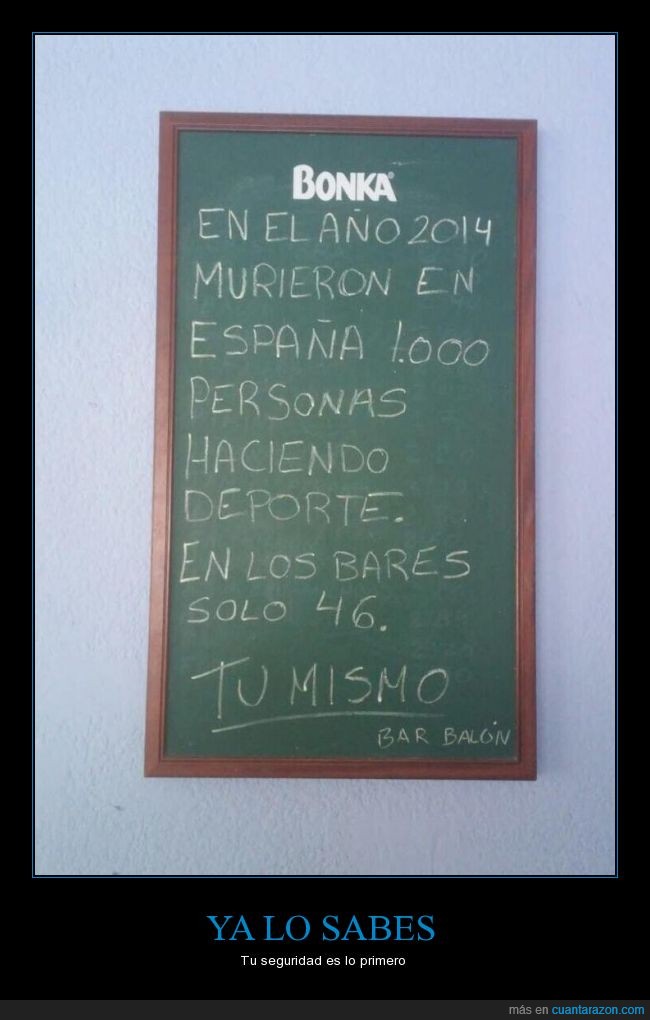 BONKA®
EN EL AÑO 2014
MURIERON EN
ESPAÑA 1.000
PERSONAS
HACIENDO
DEPORTE.
EN LOS BARES
SOLO 46.
TU MISMO
BAR BALÓN
YA LO SABES
Tu seguridad es lo primero
más en cuantarazon.com